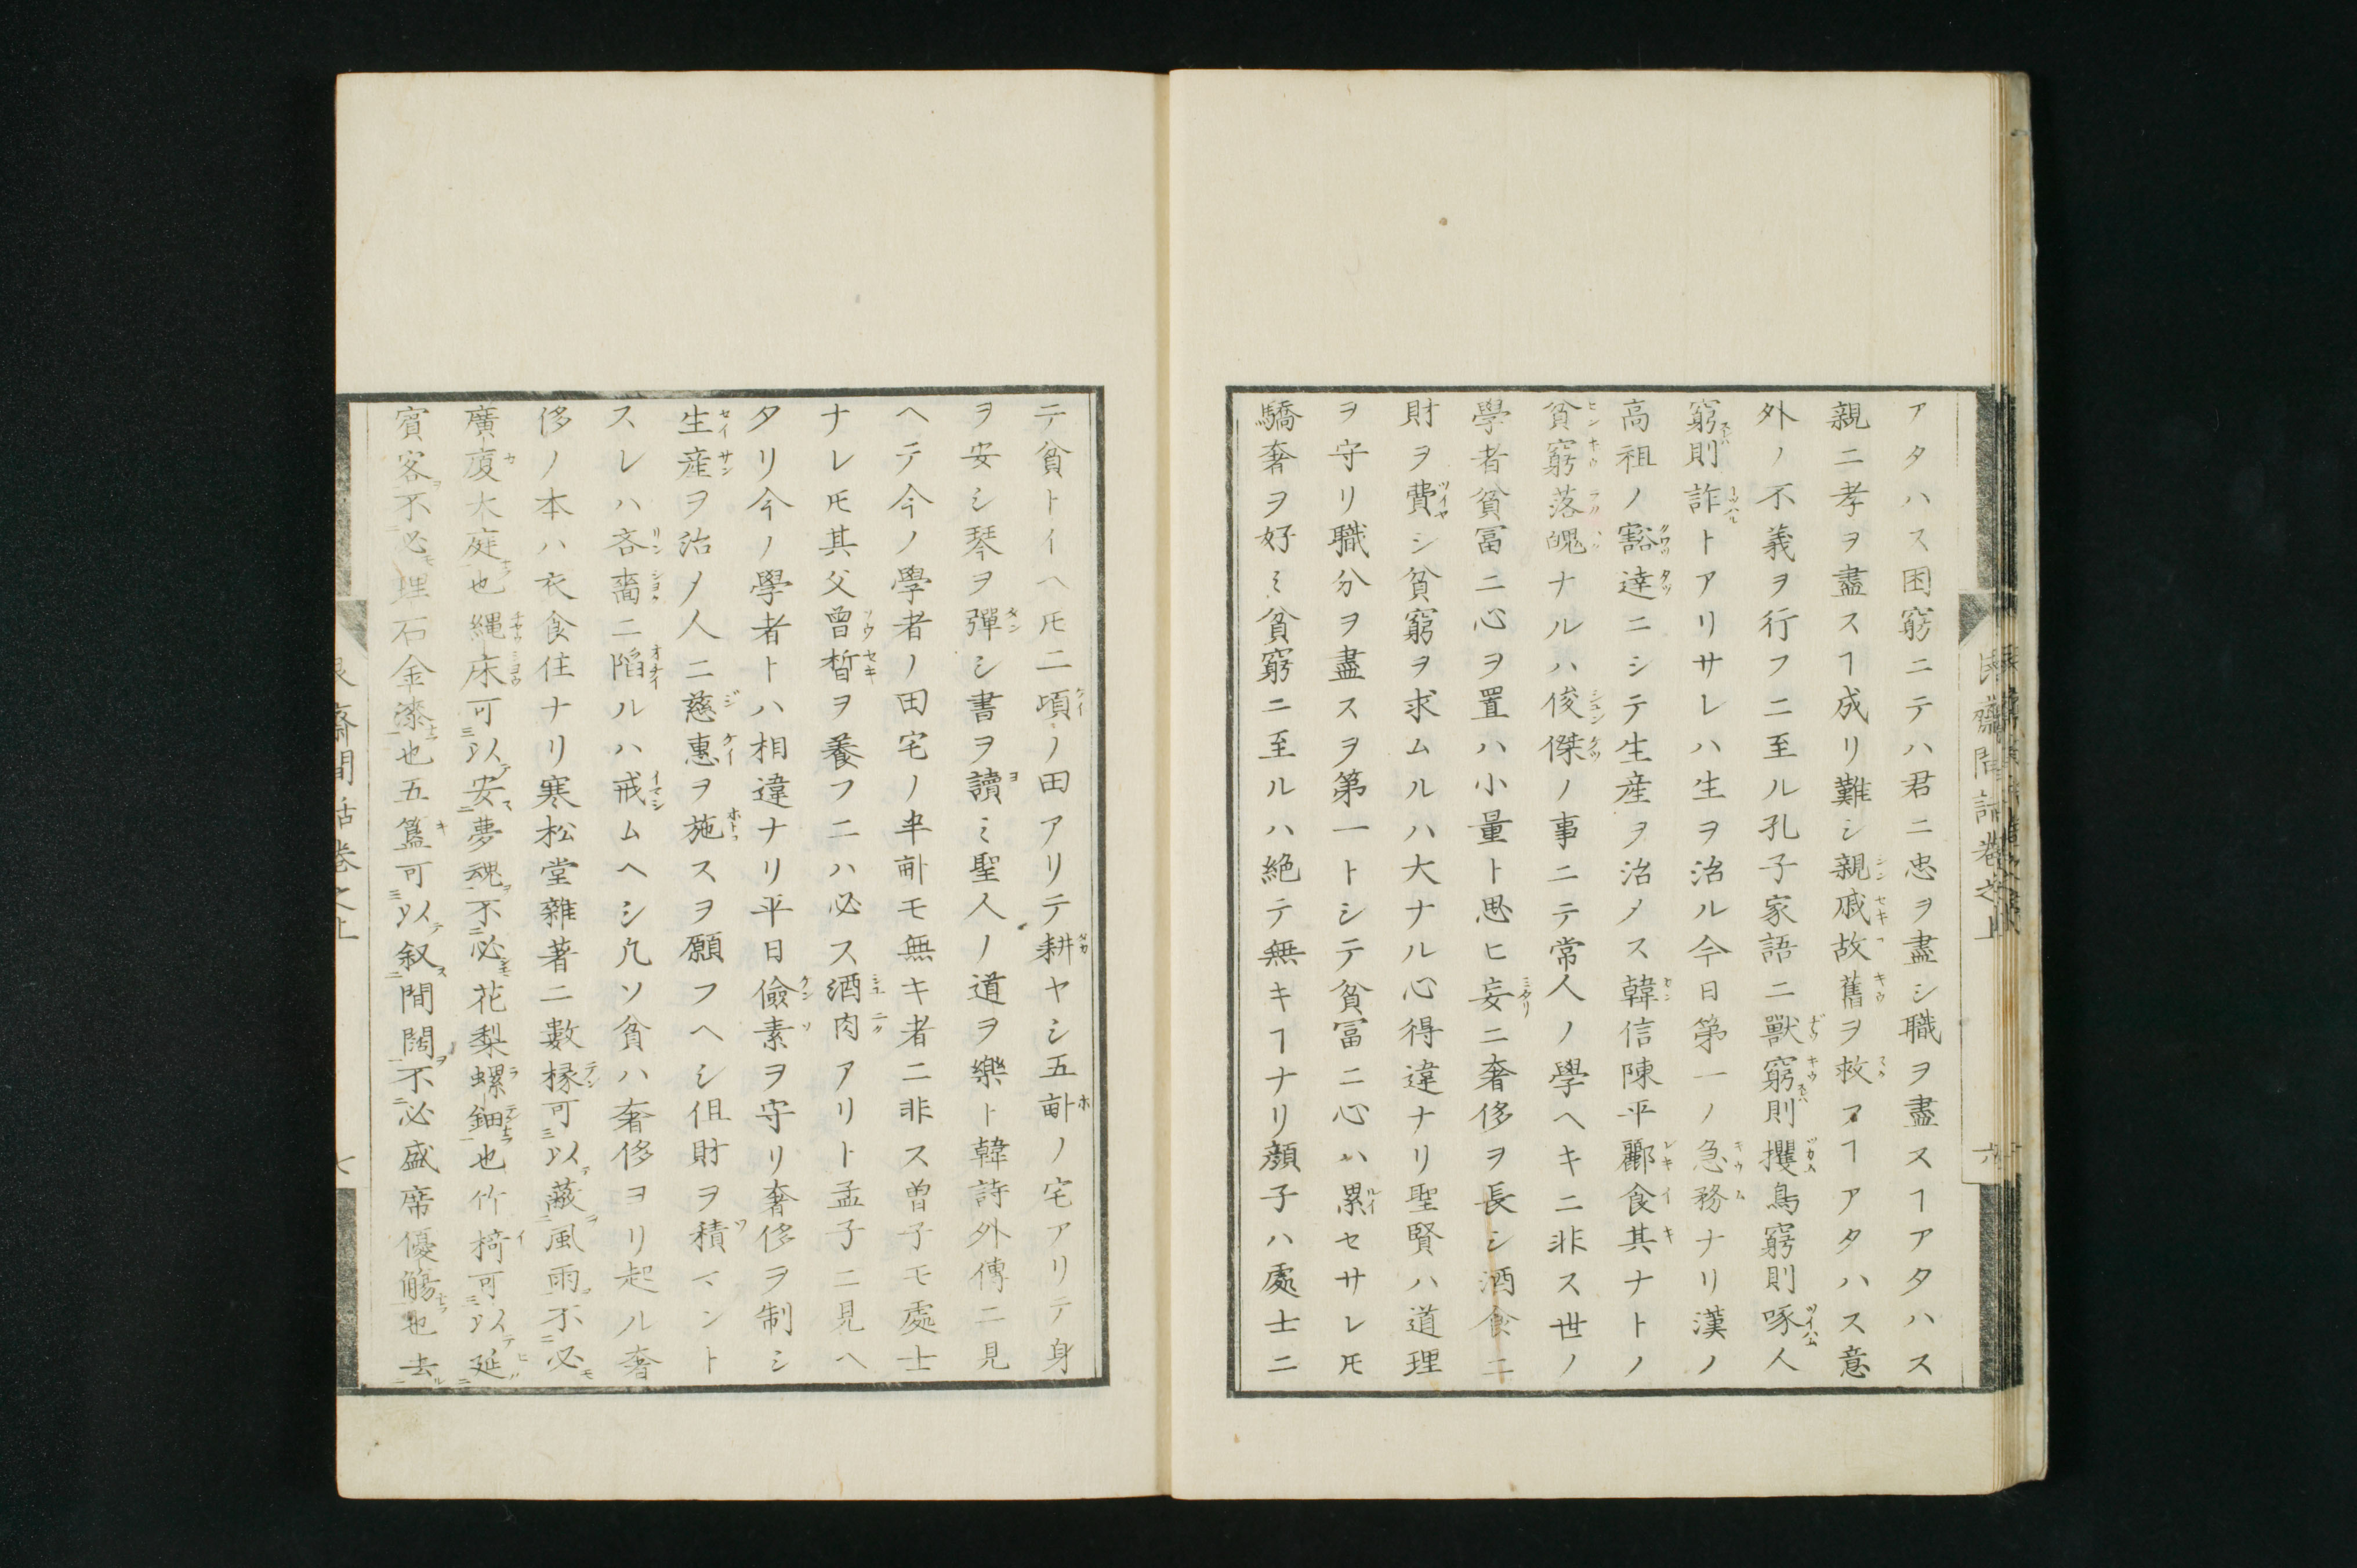 アタハス困窮ニテハ君ニ忠ヲ盡シ職ヲ盡スヿアタハス
親ニ孝ヲ盡スヿ成リ難シ親戚故舊ヲ救フヿアタハス意
外ノ不義ヲ行フニ至ル孔子家語ニ獸窮則攫鳥窮則啄人
窮則詐トアリサレハ生ヲ治ル今日第一ノ急務ナリ漢ノ
高祖ノ豁達ニシテ生産ヲ治メス韓信陳平酈食其ナトノ
貧窮落魄ナルハ俊傑ノ事ニテ常人ノ學ヘキニ非ス世ノ
學者貧冨ニ心ヲ置ハ小量ト思ヒ妄ニ奢侈ヲ長シ酒食ニ
財ヲ費シ貧窮ヲ求ムルハ大ナル心得違ナリ聖賢ハ道理
ヲ守リ職分ヲ盡スヲ第一トシテ貧冨ニ心ハ累セサレ𪜈
驕奢ヲ好ミ貧窮ニ至ルハ絶テ無キヿナリ顔子ハ處士ニ
テ貧トイヘ𪜈二頃ノ田アリテ耕ヤシ五畝ノ宅アリテ身
ヲ安シ琴ヲ彈シ書ヲ讀ミ聖人ノ道ヲ樂ト韓詩外傳ニ見
ヘテ今ノ學者ノ田宅ノ半畝モ無キ者ニ非ス曽子モ處士
ナレ𪜈其父曽晳ヲ養フニハ必ス酒肉アリト孟子ニ見ヘ
タリ今ノ學者トハ相違ナリ平日儉素ヲ守リ奢侈ヲ制シ
生産ヲ治メ人ニ慈惠ヲ施スヲ願フヘシ但財ヲ積マント
スレハ吝嗇ニ陷ルハ戒ムヘシ凡ソ貧ハ奢侈ヨリ起ル奢
侈ノ本ハ衣食住ナリ寒松堂雜著ニ數椽可以蔽風雨不必
廣廈大庭也縄床可以安夢魂不必花梨螺鈿也竹椅可以延
賓客不必理石金漆也五簋可以叙間闊不必盛席優觴也去